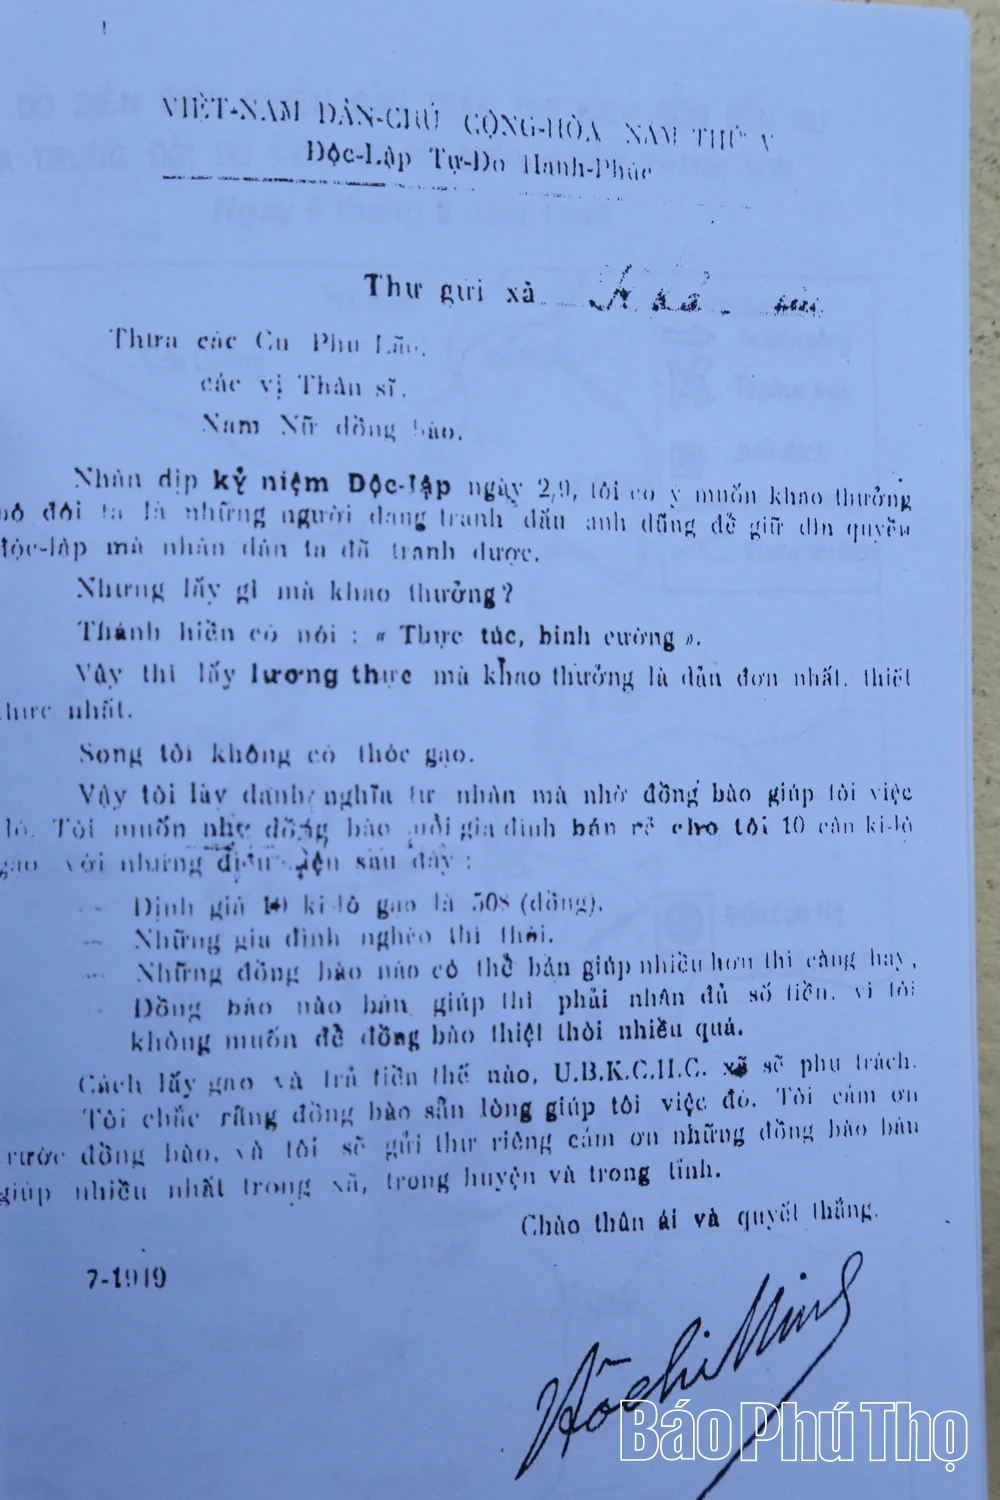 VIỆT-NAM DÂN-CHỦ CỘNG-HÒA NĂM THỨ V
Độc-Lập Tự-Do Hạnh-Phúc
Thư gửi xã
Thưa các Cụ Phụ Lão,
các vị Thân sĩ,
Nam Nữ đồng bào,
Nhân dịp kỷ niệm Độc-lập ngày 2,9, tôi có ý muốn khao thưởng
bộ đội ta là những người đang tranh đấu anh dũng để giữ dìn quyền
độc-lập mà nhân dân ta đã tranh được.
Nhưng lấy gì mà khao thưởng?
Thánh hiền có nói : « Thực túc, binh cường ».
Vậy thì lấy lương thực mà khao thưởng là dản đơn nhất, thiết
thực nhất.
Song tôi không có thóc gạo.
Vậy tôi lấy danh nghĩa tư nhân mà nhờ đồng bào giúp tôi việc
đó. Tôi muốn nhờ đồng bào mỗi gia đình bán rẻ cho tôi 10 cân ki-lô
gạo với những điều kiện sau đây :
- Định giá 10 ki-lô gạo là 50$ (đồng).
- Những gia đình nghèo thì thôi.
- Những đồng bào nào có thể bán giúp nhiều hơn thì càng hay,
- Đồng bào nào bán giúp thì phải nhận đủ số tiền, vì tôi
không muốn để đồng bào thiệt thòi nhiều quá.
Cách lấy gạo và trả tiền thế nào, U.B.K.C.H.C. xã sẽ phụ trách.
Tôi chắc rằng đồng bào sẵn lòng giúp tôi việc đó. Tôi cảm ơn
trước đồng bào, và tôi sẽ gửi thư riêng cảm ơn những đồng bào bán
giúp nhiều nhất trong xã, trong huyện và trong tỉnh.
Chào thân ái và quyết thắng.
7-1949
Hồ Chí Minh
Báo Phú Thọ